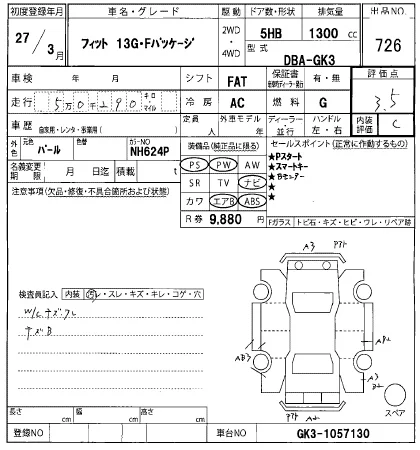 初度登録年月 車名・グレード 駆動 ドア数・形状 排気量 出品NO
27 / 3月 フィット 13G・Fパッケージ 2WD・4WD 5HB 1300 cc 726
型式 DBA-GK3
車検 年 月 シフト FAT 保証書 有・無 評価点
走行 5万0千290 キロ・マイル 冷房 AC 燃料 G 3.5
車歴 自家用・レンタ・事業用( ) 定員 人 外車モデル年 ディーラー・並行 ハンドル 左・右 内装評価 C
外色 元色 パール 色替 カラーNO NH624P 装備品(純正品に限る) セールスポイント(正常に作動するもの)
名義変更期限 月 日迄 積載 t PS PW AW ★Pスタート
SR TV ナビ ★スマートキー
注意事項(欠品・修復・不具合箇所および状態) カワ エアB ABS ★Bモニター
R券 9,880円 Fガラス トビ石・キズ・ヒビ・ワレ・リペア跡
A3
検査員記入 内装 汚レ・スレ・キズ・キレ・コゲ・穴
W/Lキズクレ
キズB
AB3
AB2
A3
B2
A2
スペア
長さ cm 幅 cm 高さ cm
登録NO 車台NO GK3-1057130